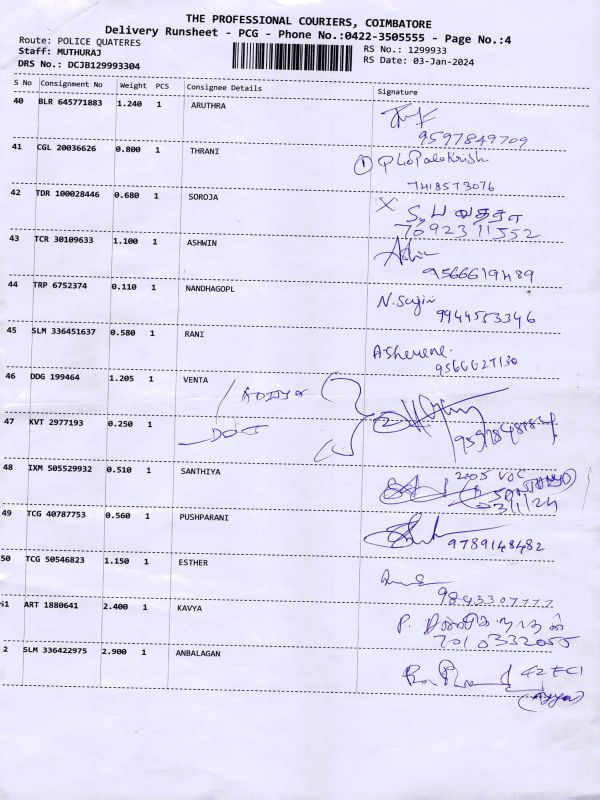 THE PROFESSIONAL COURIERS, COIMBATORE
Delivery Runsheet - PCG - Phone No.:0422-3505555 - Page No.:4
Route: POLICE QUATERES
RS No.: 1299933
Staff: MUTHURAJ
RS Date: 03-Jan-2024
DRS No.: DCJB129993304
S No Consignment No Weight PCS Consignee Details Signature
40 BLR 645771883 1.240 1 ARUTHRA
9597849709
41 CGL 20036626 0.800 1 THRANI
7418573076
42 TDR 100028446 0.680 1 SOROJA
7092311552
43 TCR 30109633 1.100 1 ASHWIN
9566619489
44 TRP 6752374 0.110 1 NANDHAGOPL N.Sujin
9944553346
45 SLM 336451637 0.580 1 RANI
46 DDG 199464 1.205 1 VENTA
47 KVT 2977193 0.250 1
48 IXM 505529932 0.510 1 SANTHIYA
3/1/24
49 TCG 40787753 0.560 1 PUSHPARANI
9789148482
50 TCG 50546823 1.150 1 ESTHER
9843307777
51 ART 1880641 2.400 1 KAVYA
7010332055
2 SLM 336422975 2.900 1 ANBALAGAN